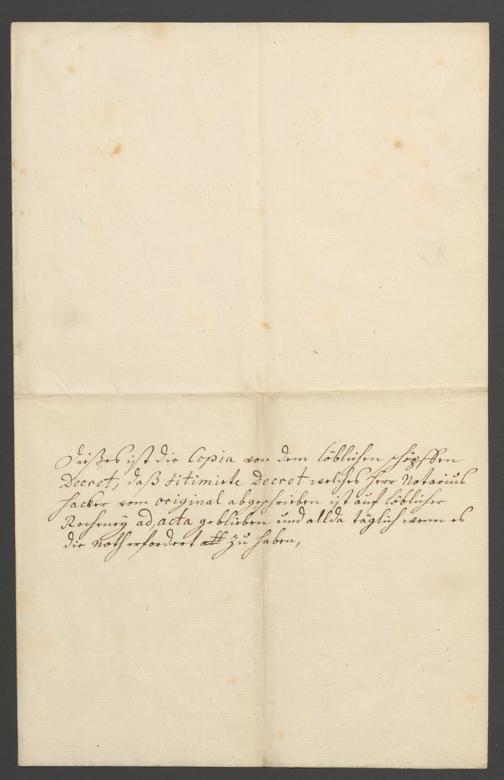 Dießes ist die Copia von dem löblichen schöpffen
Decret, daß fitimirte Decret welches herr Notarius
hacker vom original abgeschrieben ist auf löblicher
Recheney ad acta geblieben und allda täglich wenn es
die Noth erfordert zu haben,